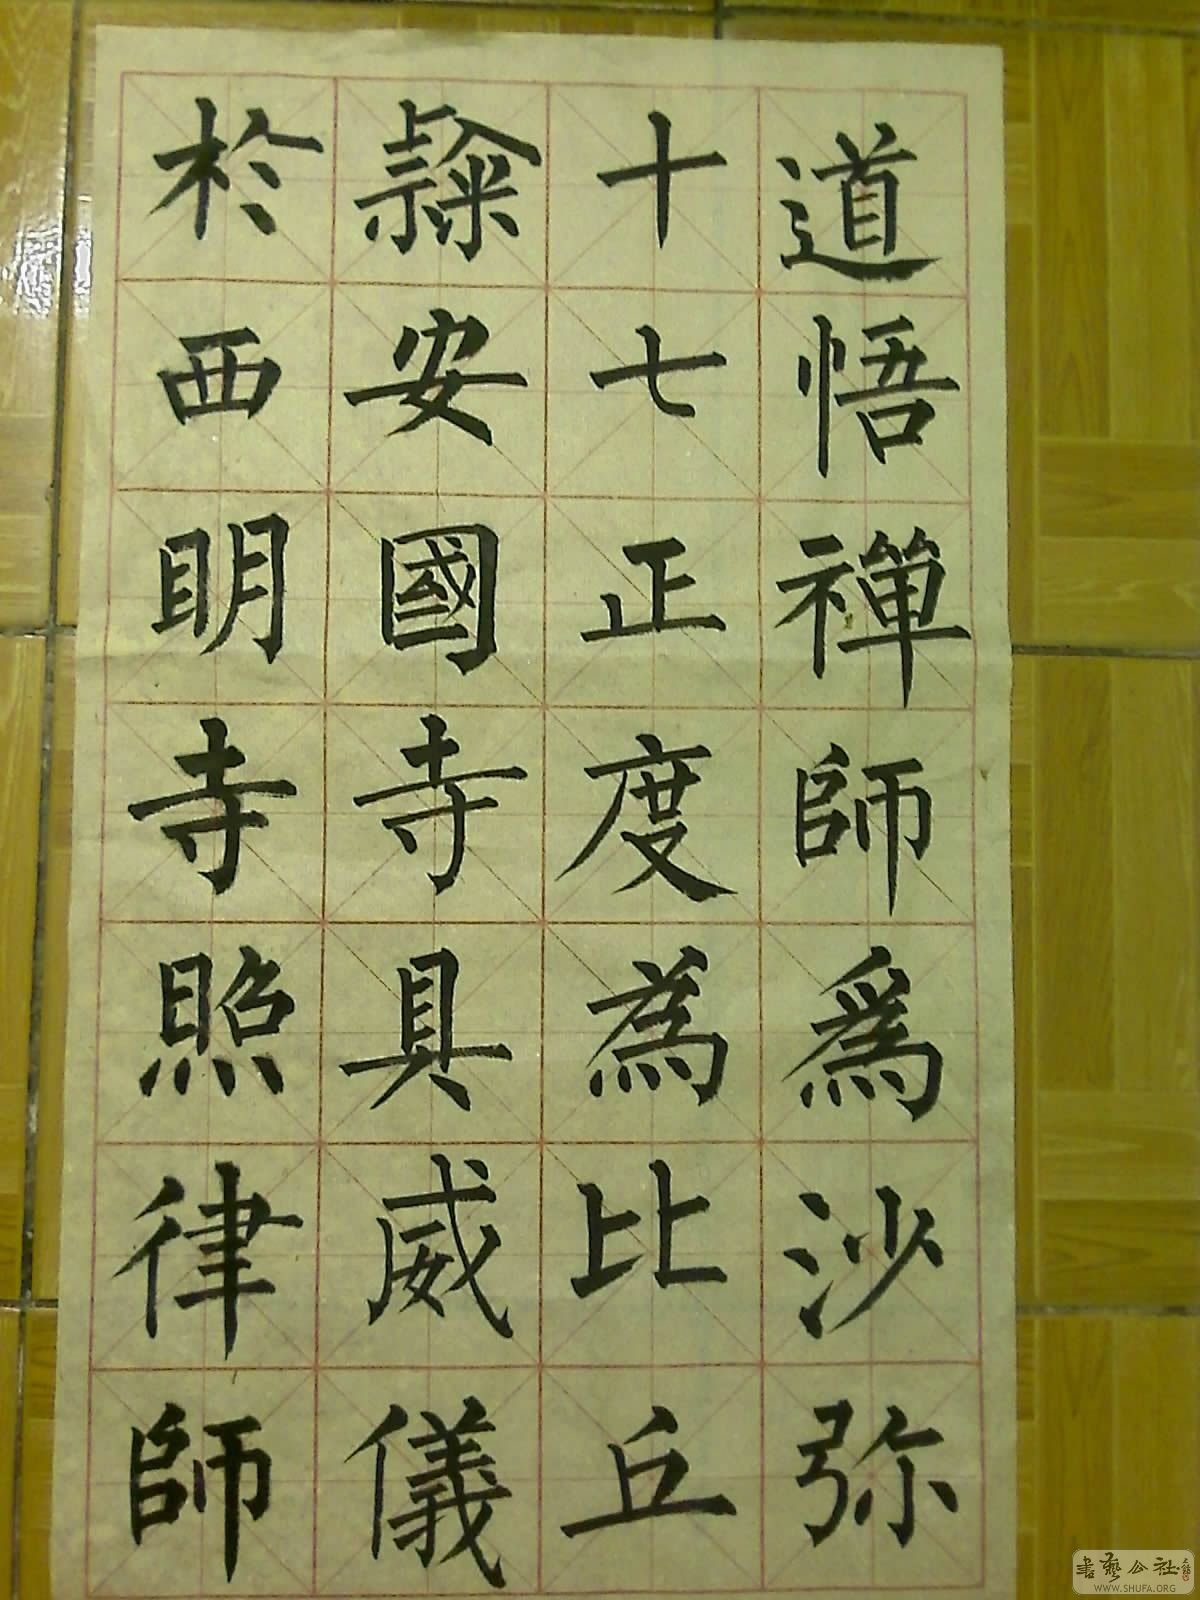 道悟禪師爲沙弥
十七正度為比丘
𨽻安國寺具威儀
於西明寺照律師
書藝公社
WWW.SHUFA.ORG